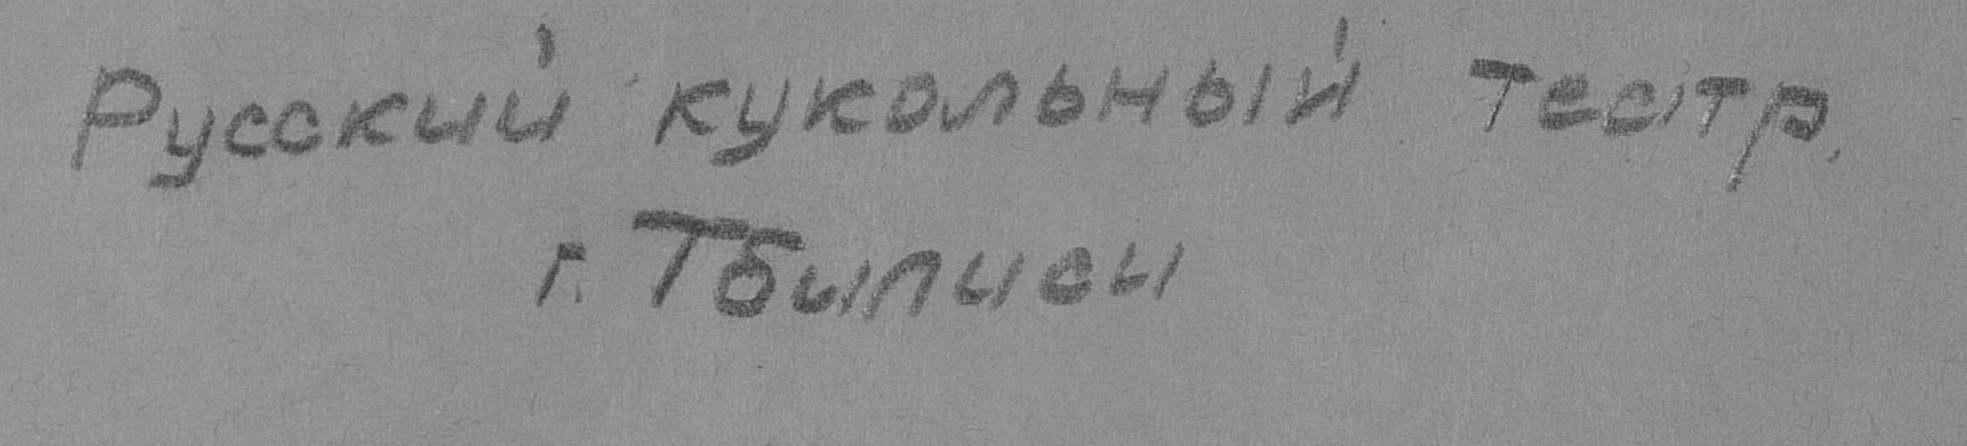 Русский кукольный театр.
г. Тбилиси